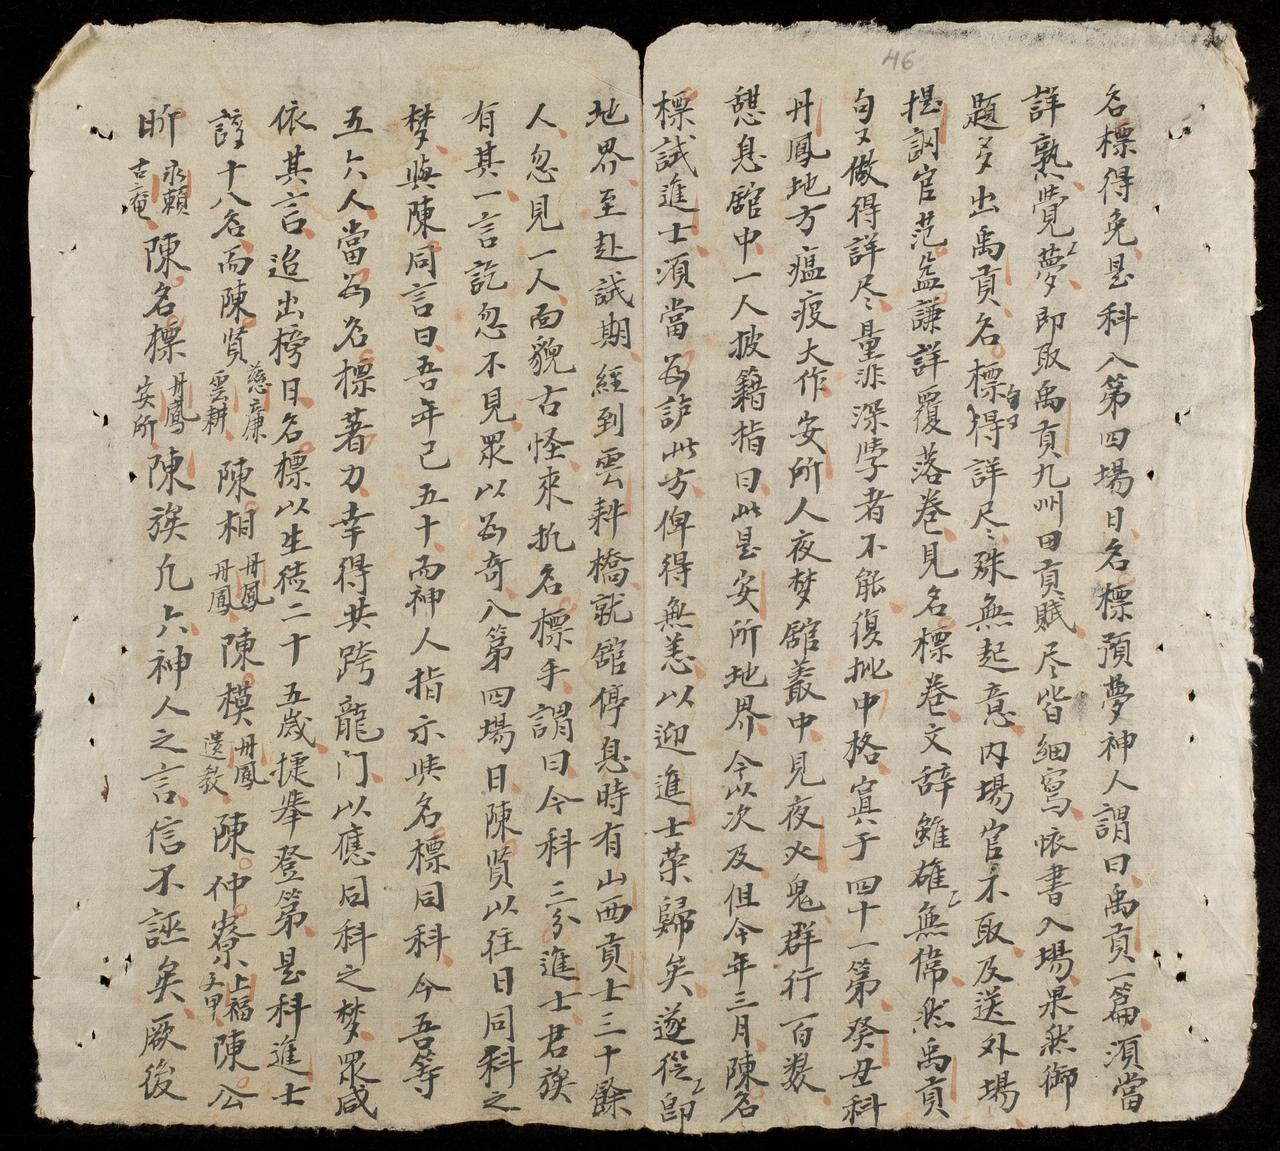 46
名標得免是科入第四場日名標預夢神人謂曰禹貢一篇須當
詳熟覺〻夢即取禹貢九州田貢賦尽皆細寫恢書入場果然御
題多出禹貢名標旬又得詳尽〻殊無起意内場官不取及送外場
提調官范益謙詳覆落卷見名標卷文辞雖雄〻無偉然禹貢
旬又做得詳尽量非深學者不能復批中格寘于四十一第癸丑科
丹鳳地方瘟疫大作安所人夜梦舘叢中見夜火鬼群行百数
憇息舘中一人披籍指曰此是安所地界今以次及但今年三月陳名
標試進士須當為訪此方俾得無恙以迎進士荣歸矣遂從〻即
地界至赴試期經到雲耕橋就舘停息時有山西貢士三十餘
人忽見一人面貌古怪來扎名標手謂曰今科三分進士君族
有其一言訖忽不見眾以為奇入第四場日陳賢以往日同科之
梦與陳同言曰吾年已五十而神人指示與名標同科今吾等
五六人當為名標著力幸得共跨龍门以應同科之梦眾咸
依其言迨出榜日名標以生徒二十五歲捷舉登第是科進士
諄十八名而陳賢慈廉雲耕陳相丹鳳丹鳳陳模丹鳳遺教陳仲寮上福文甲陳公
昕永賴古庵陳名標丹鳳安所陳族凢六神人之言信不誣矣厥後